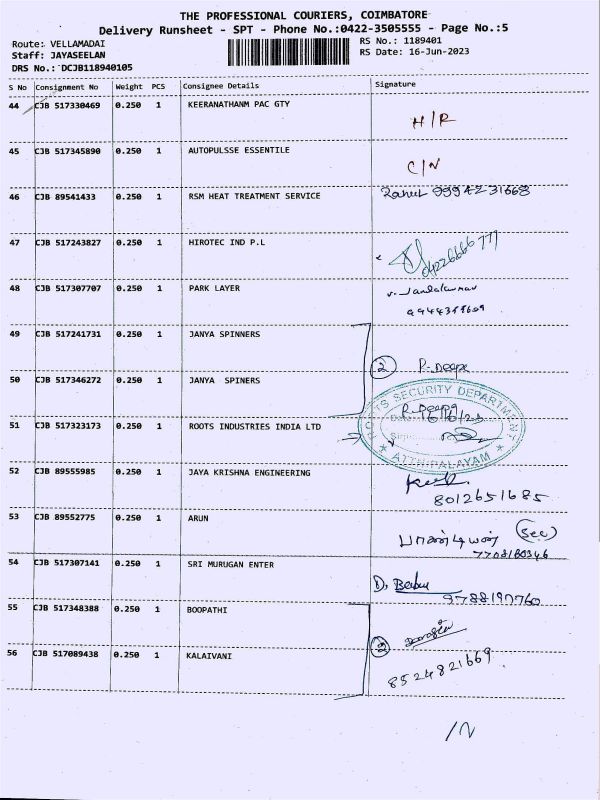 THE PROFESSIONAL COURIERS, COIMBATORE
Delivery Runsheet - SPT - Phone No.:0422-3505555 - Page No.:5
Route: VELLAMADAI
RS No.: 1189401
Staff: JAYASEELAN
RS Date: 16-Jun-2023
DRS No.: DCJB118940105
S No Consignment No Weight PCS Consignee Details Signature
44 CJB 517330469 0.250 1 KEERANATHANM PAC GTY
H/R
45 CJB 517345890 0.250 1 AUTOPULSSE ESSENTILE
C/N
46 CJB 89541433 0.250 1 RSM HEAT TREATMENT SERVICE
Rahul 9994231668
47 CJB 517243827 0.250 1 HIROTEC IND P.L
04226666777
48 CJB 517307707 0.250 1 PARK LAYER
49 CJB 517241731 0.250 1 JANYA SPINNERS
2 R-Deepa
50 CJB 517346272 0.250 1 JANYA SPINERS
ROOTS SECURITY DEPARTMENT
R-Deepa
16/6/23
51 CJB 517323173 0.250 1 ROOTS INDUSTRIES INDIA LTD
ATTHIPALAYAM
52 CJB 89555985 0.250 1 JAYA KRISHNA ENGINEERING
8012651685
53 CJB 89552775 0.250 1 ARUN
பாண்டியன் (Sec)
7708180346
54 CJB 517307141 0.250 1 SRI MURUGAN ENTER
D. Babu
9788197760
55 CJB 517348388 0.250 1 BOOPATHI
56 CJB 517089438 0.250 1 KALAIVANI
8524821669
/N